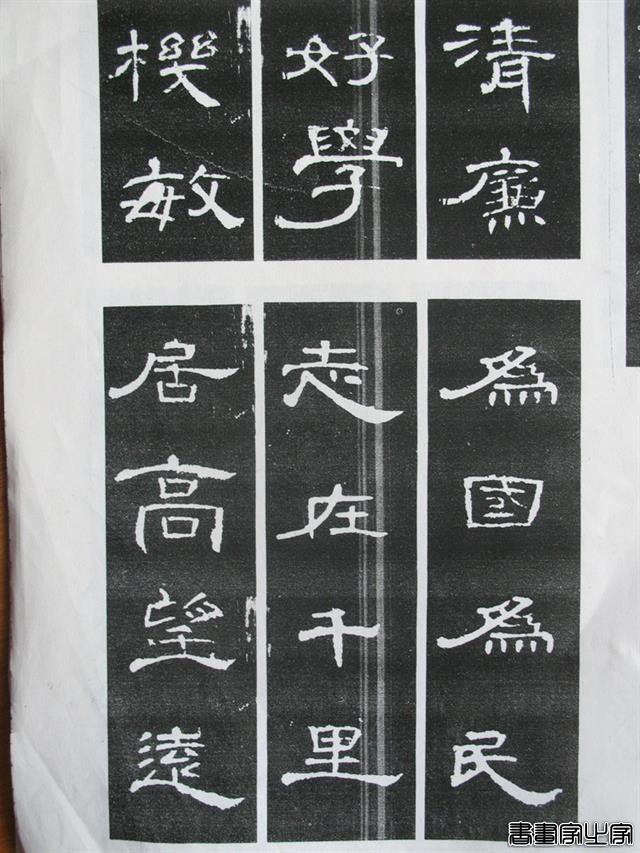 清廉
好學
機敏
爲國爲民
志在千里
居高望遠
書畫家之家